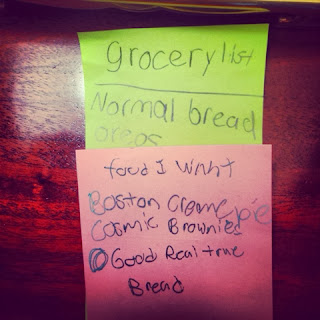 Grocery list
Normal bread
oreos
food I Want
Boston Creme pie
Cosmic Brownies
Good Real true
Bread